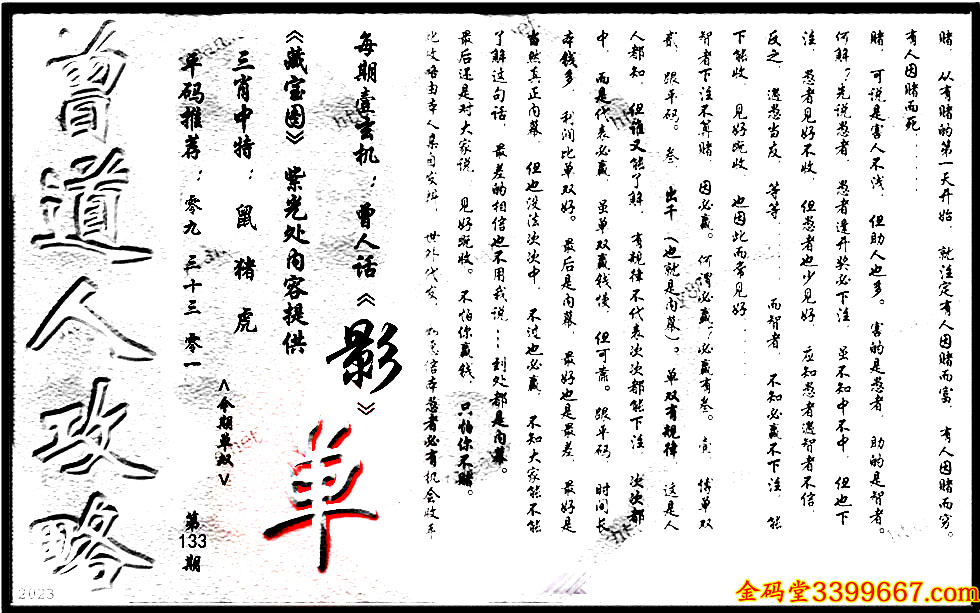 赌．从有赌的第一天开始．就注定有人因赌而富．有人因赌而穷。
有人因赌而死……
赌．可说是害人不浅．但助人也多。害的是愚者．助的是智者。
何解？先说愚者．愚者逢开奖必下注．虽不知中不中．但也下
注．愚者见好不收．但愚者也少见好．应知愚者遇智者不信．
反之．遇愚当反．等等……而智者．不知必赢不下注．能
下能收．见好就收．也因此而常见好……
智者下注不算赌．因必赢。何谓必赢？必赢有叁。壹．博单双
贰．跟平码。叁．出千（也就是内幕）。单双有规律．这是人
人都知．但谁又能了解．有规律不代表次次都能下注．次次都
中．而是代表必赢．虽单双赢钱慢．但可靠。跟平码．时间长
本钱多．利润比单双好。最后是内幕．最好也是最差．最好是
当然真正内幕．但也没法次次中．不过也必赢．不知大家能不能
了解这句话．最差的相信也不用我说……到处都是内幕。
最后还是对大家说．见好就收。不怕你赢钱．只怕你不赌。
每期壹玄机：曾人话《影》
《藏宝图》紫光处内容提供
单
三肖中特：鼠 猪 虎
<今期单双>
单码推荐：零九 三十三 零一
第
133
期
曾道人攻略
2023
金码堂3399667.com